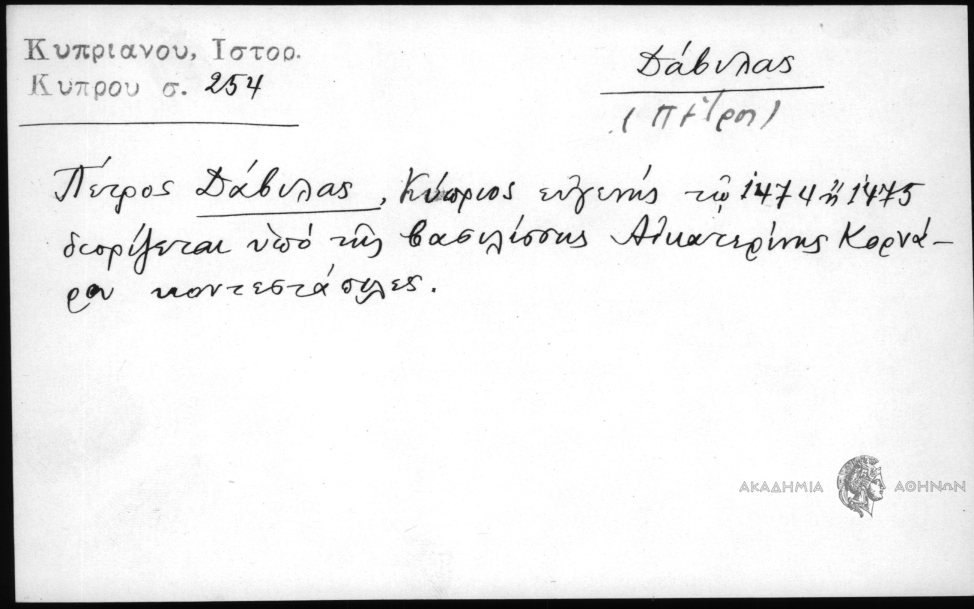 Κυπριανου, Ιστορ.
Κυπρου σ. 254
Δάβιλας
(Πέτρος)
Πέτρος Δάβιλας, Κύπριος εὐγενής τῷ 1474 ἢ 1475
διορίζεται ὑπό τῆς βασιλίσσης Αἰκατερίνης Κορνά-
ρου κοντεστάβιλες.
ΑΚΑΔΗΜΙΑ ΑΘΗΝΩΝ